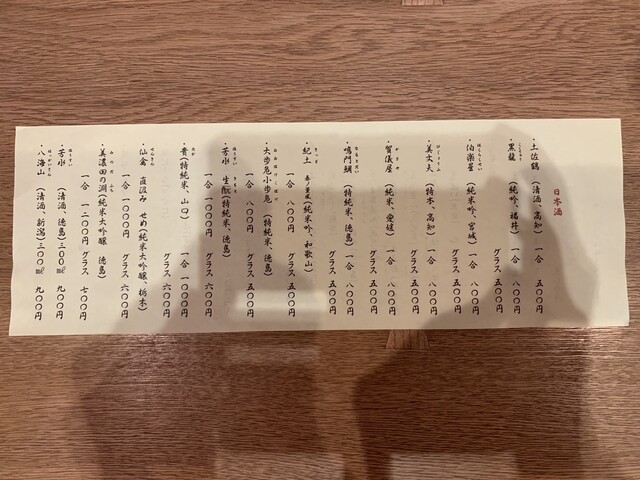 日本酒
・土佐鶴（清酒、高知） 一合 五〇〇円
・黒龍（純吟、福井） 一合 八〇〇円
グラス 五〇〇円
・伯楽星（純米吟、宮城） 一合 八〇〇円
グラス 五〇〇円
・美丈夫（特本、高知） 一合 八〇〇円
グラス 五〇〇円
・賀儀屋（純米、愛媛） 一合 八〇〇円
グラス 五〇〇円
・鳴門鯛（特純米、徳島） 一合 八〇〇円
グラス 五〇〇円
・紀土（純米吟、和歌山）
一合 八〇〇円 グラス 五〇〇円
・大歩危小歩危（特純米、徳島）
一合 八〇〇円 グラス 五〇〇円
・芳水 生酛（特純米、徳島）
一合 一〇〇〇円 グラス 六〇〇円
・貴（特純米、山口） 一合 一〇〇〇円
グラス 六〇〇円
・仙禽 直汲み せめ（純米大吟醸、栃木）
一合 一〇〇〇円 グラス 六〇〇円
・美濃田の渕（純米大吟醸 徳島）
一合 一二〇〇円 グラス 七〇〇円
・芳水（清酒、徳島）三〇〇㎖ 九〇〇円
・八海山（清酒、新潟）三〇〇㎖ 九〇〇円